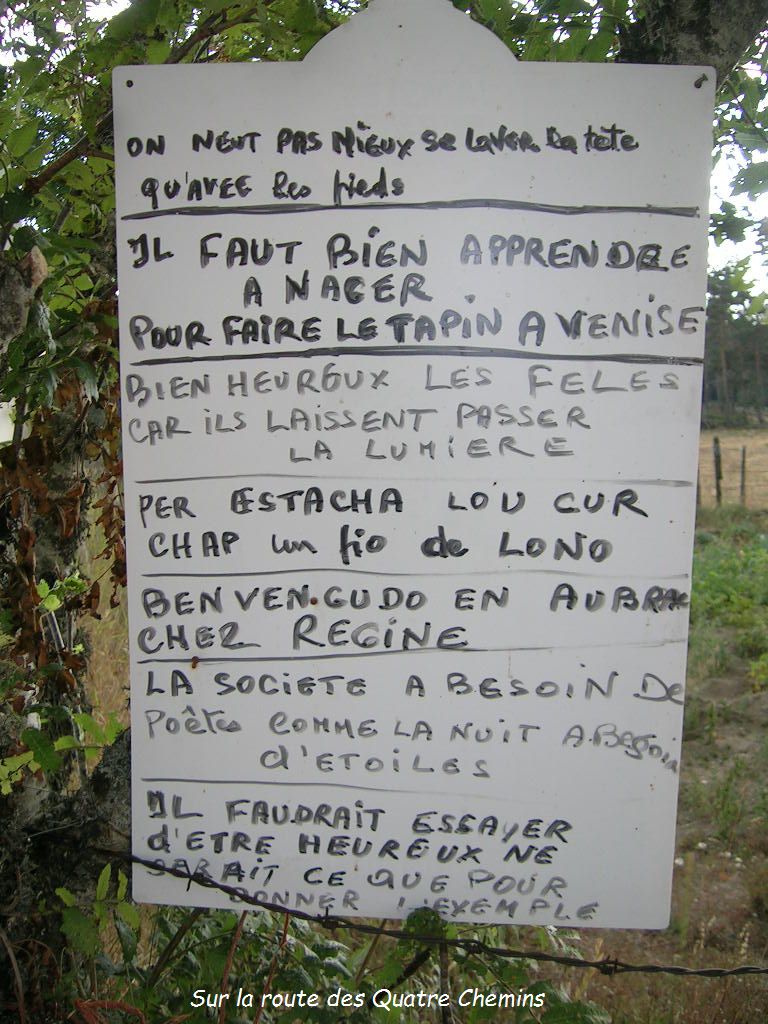 ON NEUT PAS MIEUX Se LAVER la tete
QU'AVEC les pieds
IL FAUT BIEN APPRENDRE
A NAGER
POUR FAIRE LE TAPIN A VENISE
BIEN HEUREUX LES FELES
CAR ILS LAISSENT PASSER
LA LUMIERE
PER ESTACHA LOU CUR
CHAP un fio de LONO
BENVENGUDO EN AUBRAC
CHEZ REGINE
LA SOCIETE A BESOIN De
Poêtes COMME LA NUIT A BeSoin
d'ETOILES
IL FAUDRAIT ESSAYER
d'ETRE HEUREUX NE
SERAIT CE QUE POUR
DONNER L'EXEMPLE
Sur la route des Quatre Chemins